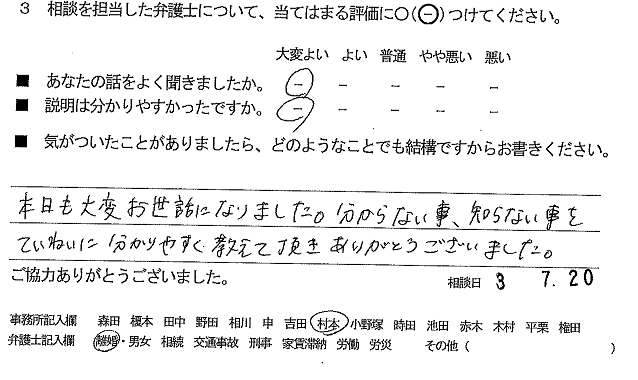 3 相談を担当した弁護士について、当てはまる評価に○(⊖)つけてください。
大変よい よい 普通 やや悪い 悪い
■ あなたの話をよく聞きましたか。 − − − − −
■ 説明は分かりやすかったですか。 − − − − −
■ 気がついたことがありましたら、どのようなことでも結構ですからお書きください。
本日も大変お世話になりました。分からない事、知らない事を
ていねいに分かりやすく教えて頂きありがとうございました。
ご協力ありがとうございました。 相談日 3 7.20
事務所記入欄 森田 榎本 田中 野田 相川 申 吉田 村本 小野塚 時田 池田 赤木 木村 平栗 権田
弁護士記入欄 離婚・男女 相続 交通事故 刑事 家賃滞納 労働 労災 その他( )